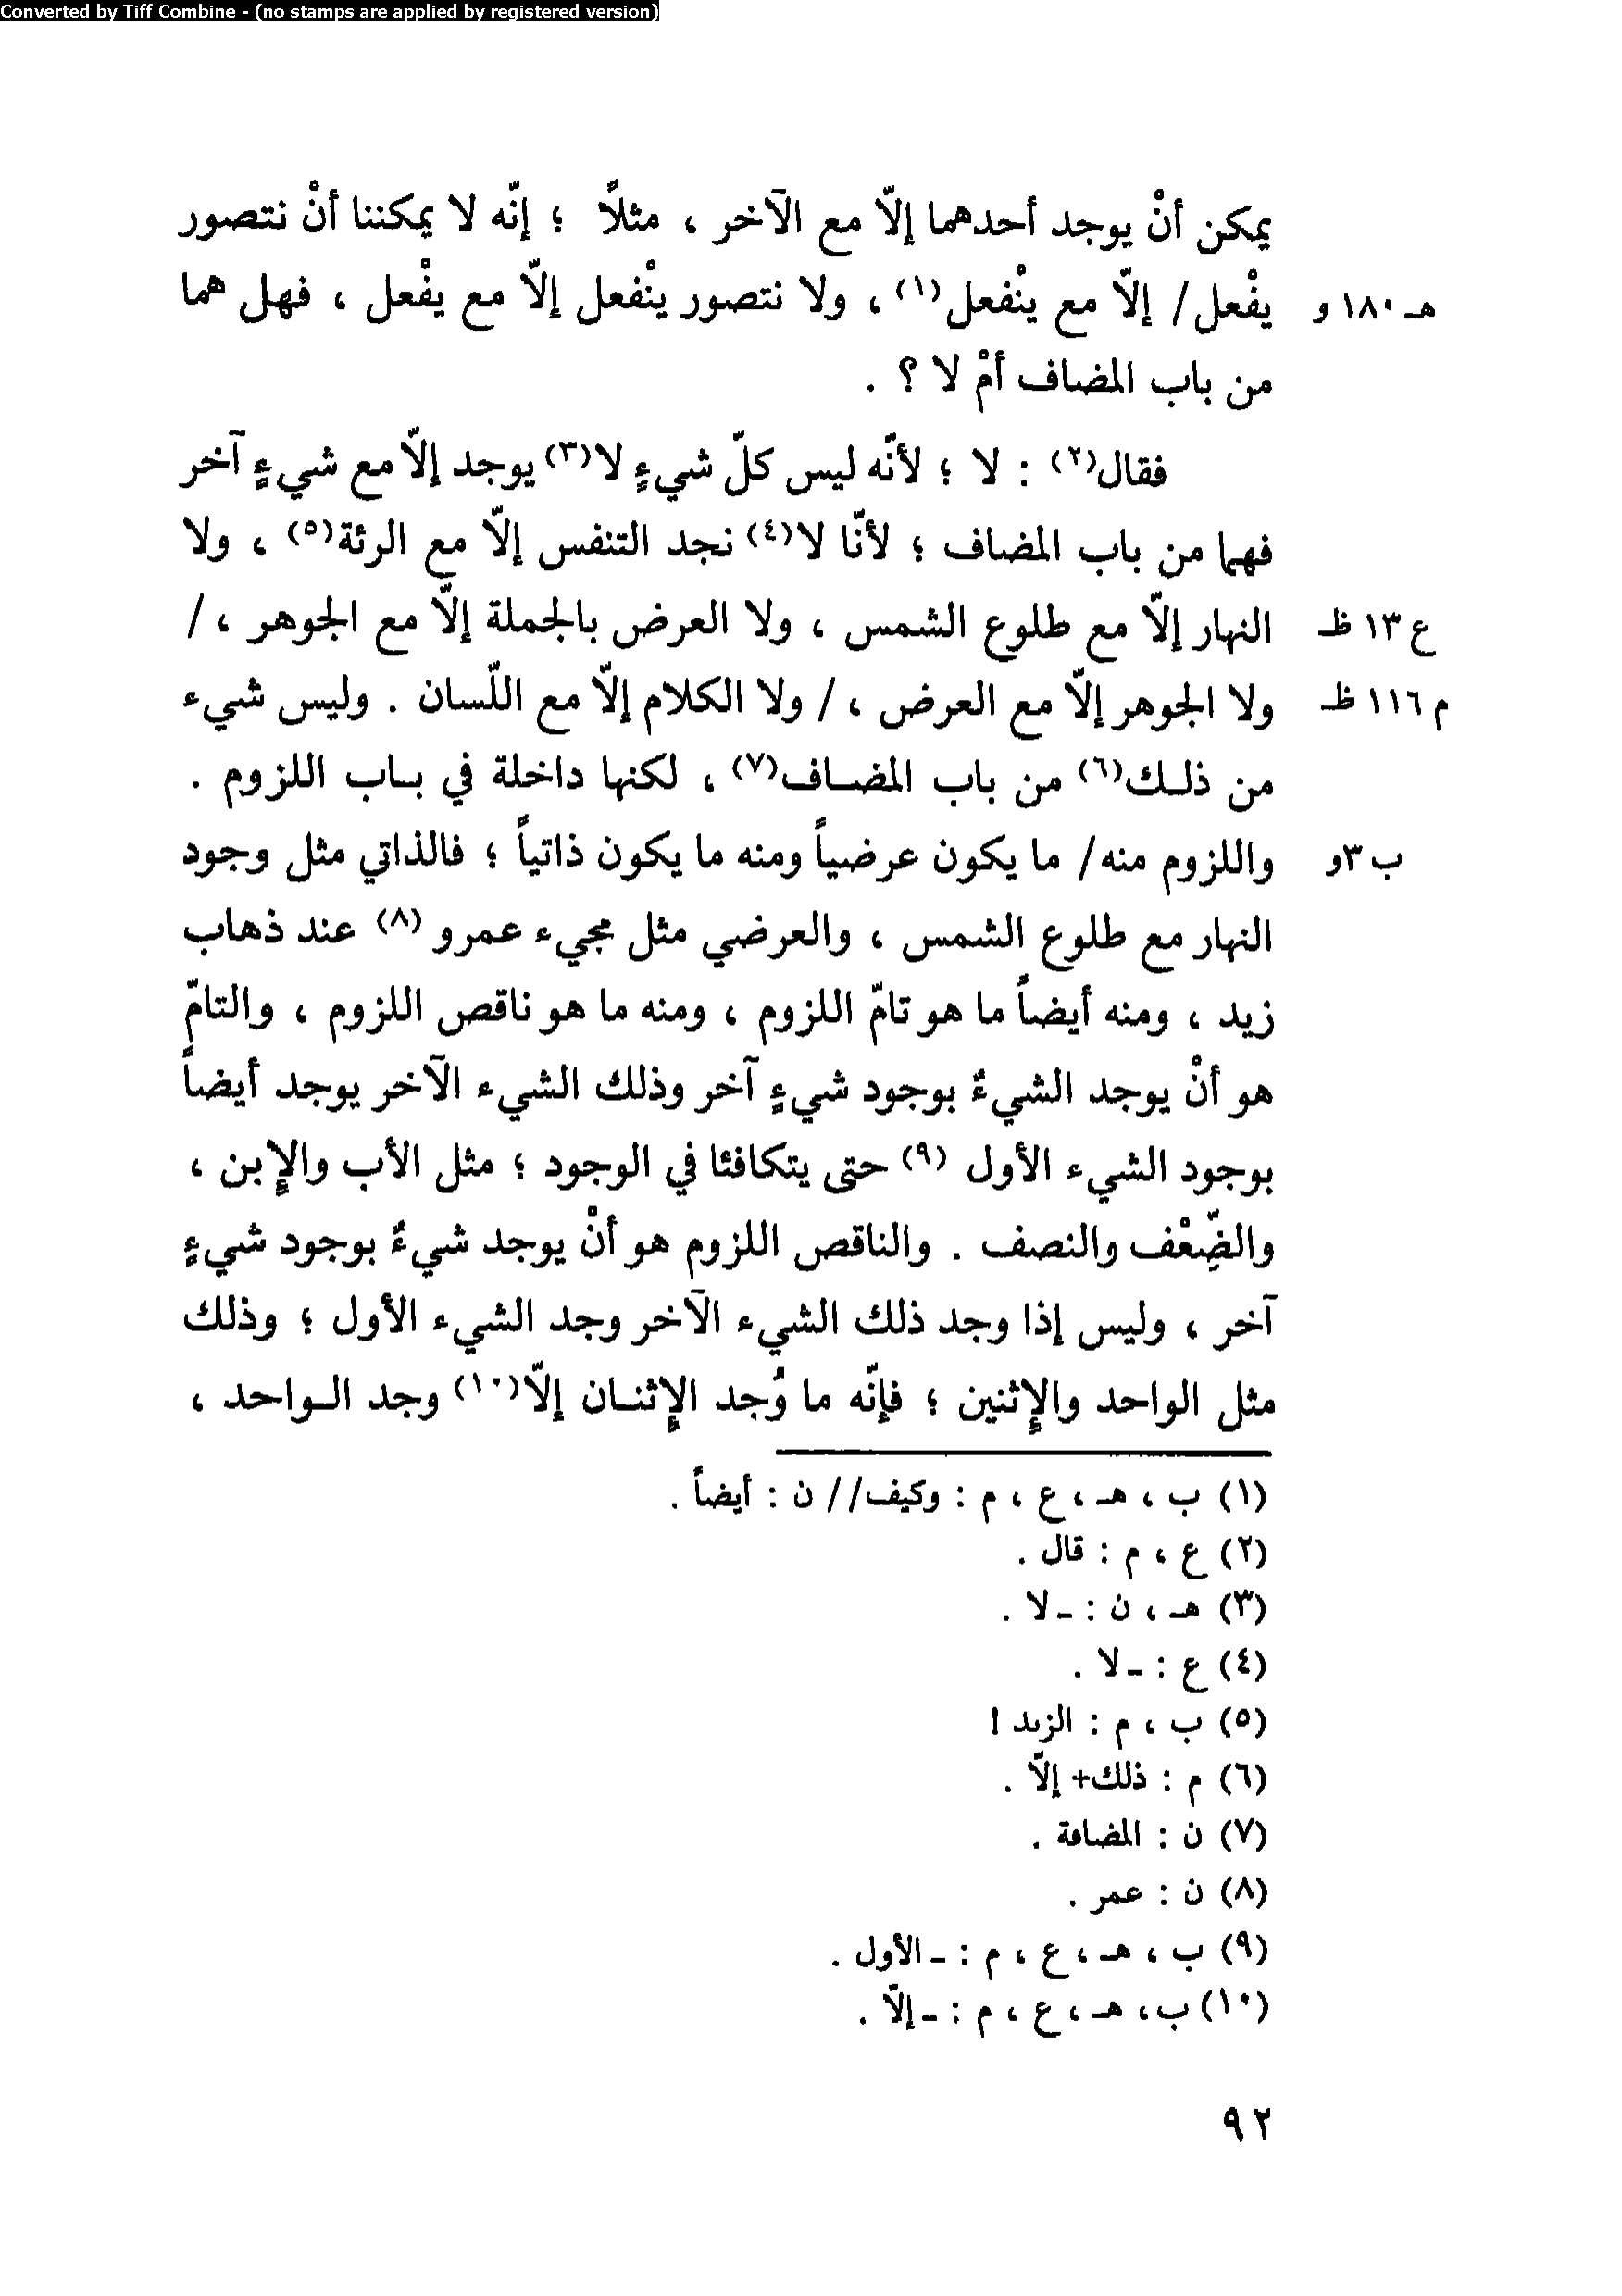 Converted by Tiff Combine - (no stamps are applied by registered version)
يمكن أنْ يوجد أحدهما إلاّ مع الآخر ، مثلاً ؛ إنّه لا يمكننا أنْ نتصور
هـ ١٨٠ و يفْعل/ إلاّ مع ينْفعل(١) ، ولا نتصور ينْفعل إلاّ مع يفْعل ، فهل هما
من باب المضاف أمْ لا ؟ .
فقال(٢) : لا ؛ لأنّه ليس كلّ شيءٍ لا(٣) يوجد إلاّ مع شيءٍ آخر
فهما من باب المضاف ؛ لأنّا لا(٤) نجد التنفس إلاّ مع الرئة(٥) ، ولا
ع ١٣ ظ النهار إلاّ مع طلوع الشمس ، ولا العرض بالجملة إلاّ مع الجوهر ، /
م ١١٦ ظ ولا الجوهر إلاّ مع العرض ، / ولا الكلام إلاّ مع اللّسان . وليس شيء
من ذلـك(٦) من باب المضـاف(٧) ، لكنها داخلة في بـاب اللزوم .
ب ٣و واللزوم منه/ ما يكون عرضياً ومنه ما يكون ذاتياً ؛ فالذاتي مثل وجود
النهار مع طلوع الشمس ، والعرضي مثل مجيء عمرو (٨) عند ذهاب
زيد ، ومنه أيضاً ما هو تامّ اللزوم ، ومنه ما هو ناقص اللزوم ، والتامّ
هو أنْ يوجد الشيءُ بوجود شيءٍ آخر وذلك الشيء الآخر يوجد أيضاً
بوجود الشيء الأول (٩) حتى يتكافئا في الوجود ؛ مثل الأب والإبن ،
والضِّعْف والنصف . والناقص اللزوم هو أنْ يوجد شيءٌ بوجود شيءٍ
آخر ، وليس إذا وجد ذلك الشيء الآخر وجد الشيء الأول ؛ وذلك
مثل الواحد والإثنين ؛ فإنّه ما وُجد الإثنـان إلاّ(١٠) وجد الـواحد ،
(١) ب ، هـ ، ع ، م : وكيف// ن : أيضاً .
(٢) ع ، م : قال .
(٣) هـ ، ن : ـ لا .
(٤) ع : ـ لا .
(٥) ب ، م : الزبد !
(٦) م : ذلك+ إلاّ .
(٧) ن : المضافة .
(٨) ن : عمر .
(٩) ب ، هـ ، ع ، م : ـ الأول .
(١٠) ب، هـ ، ع ، م : ـ إلاّ .
٩٢